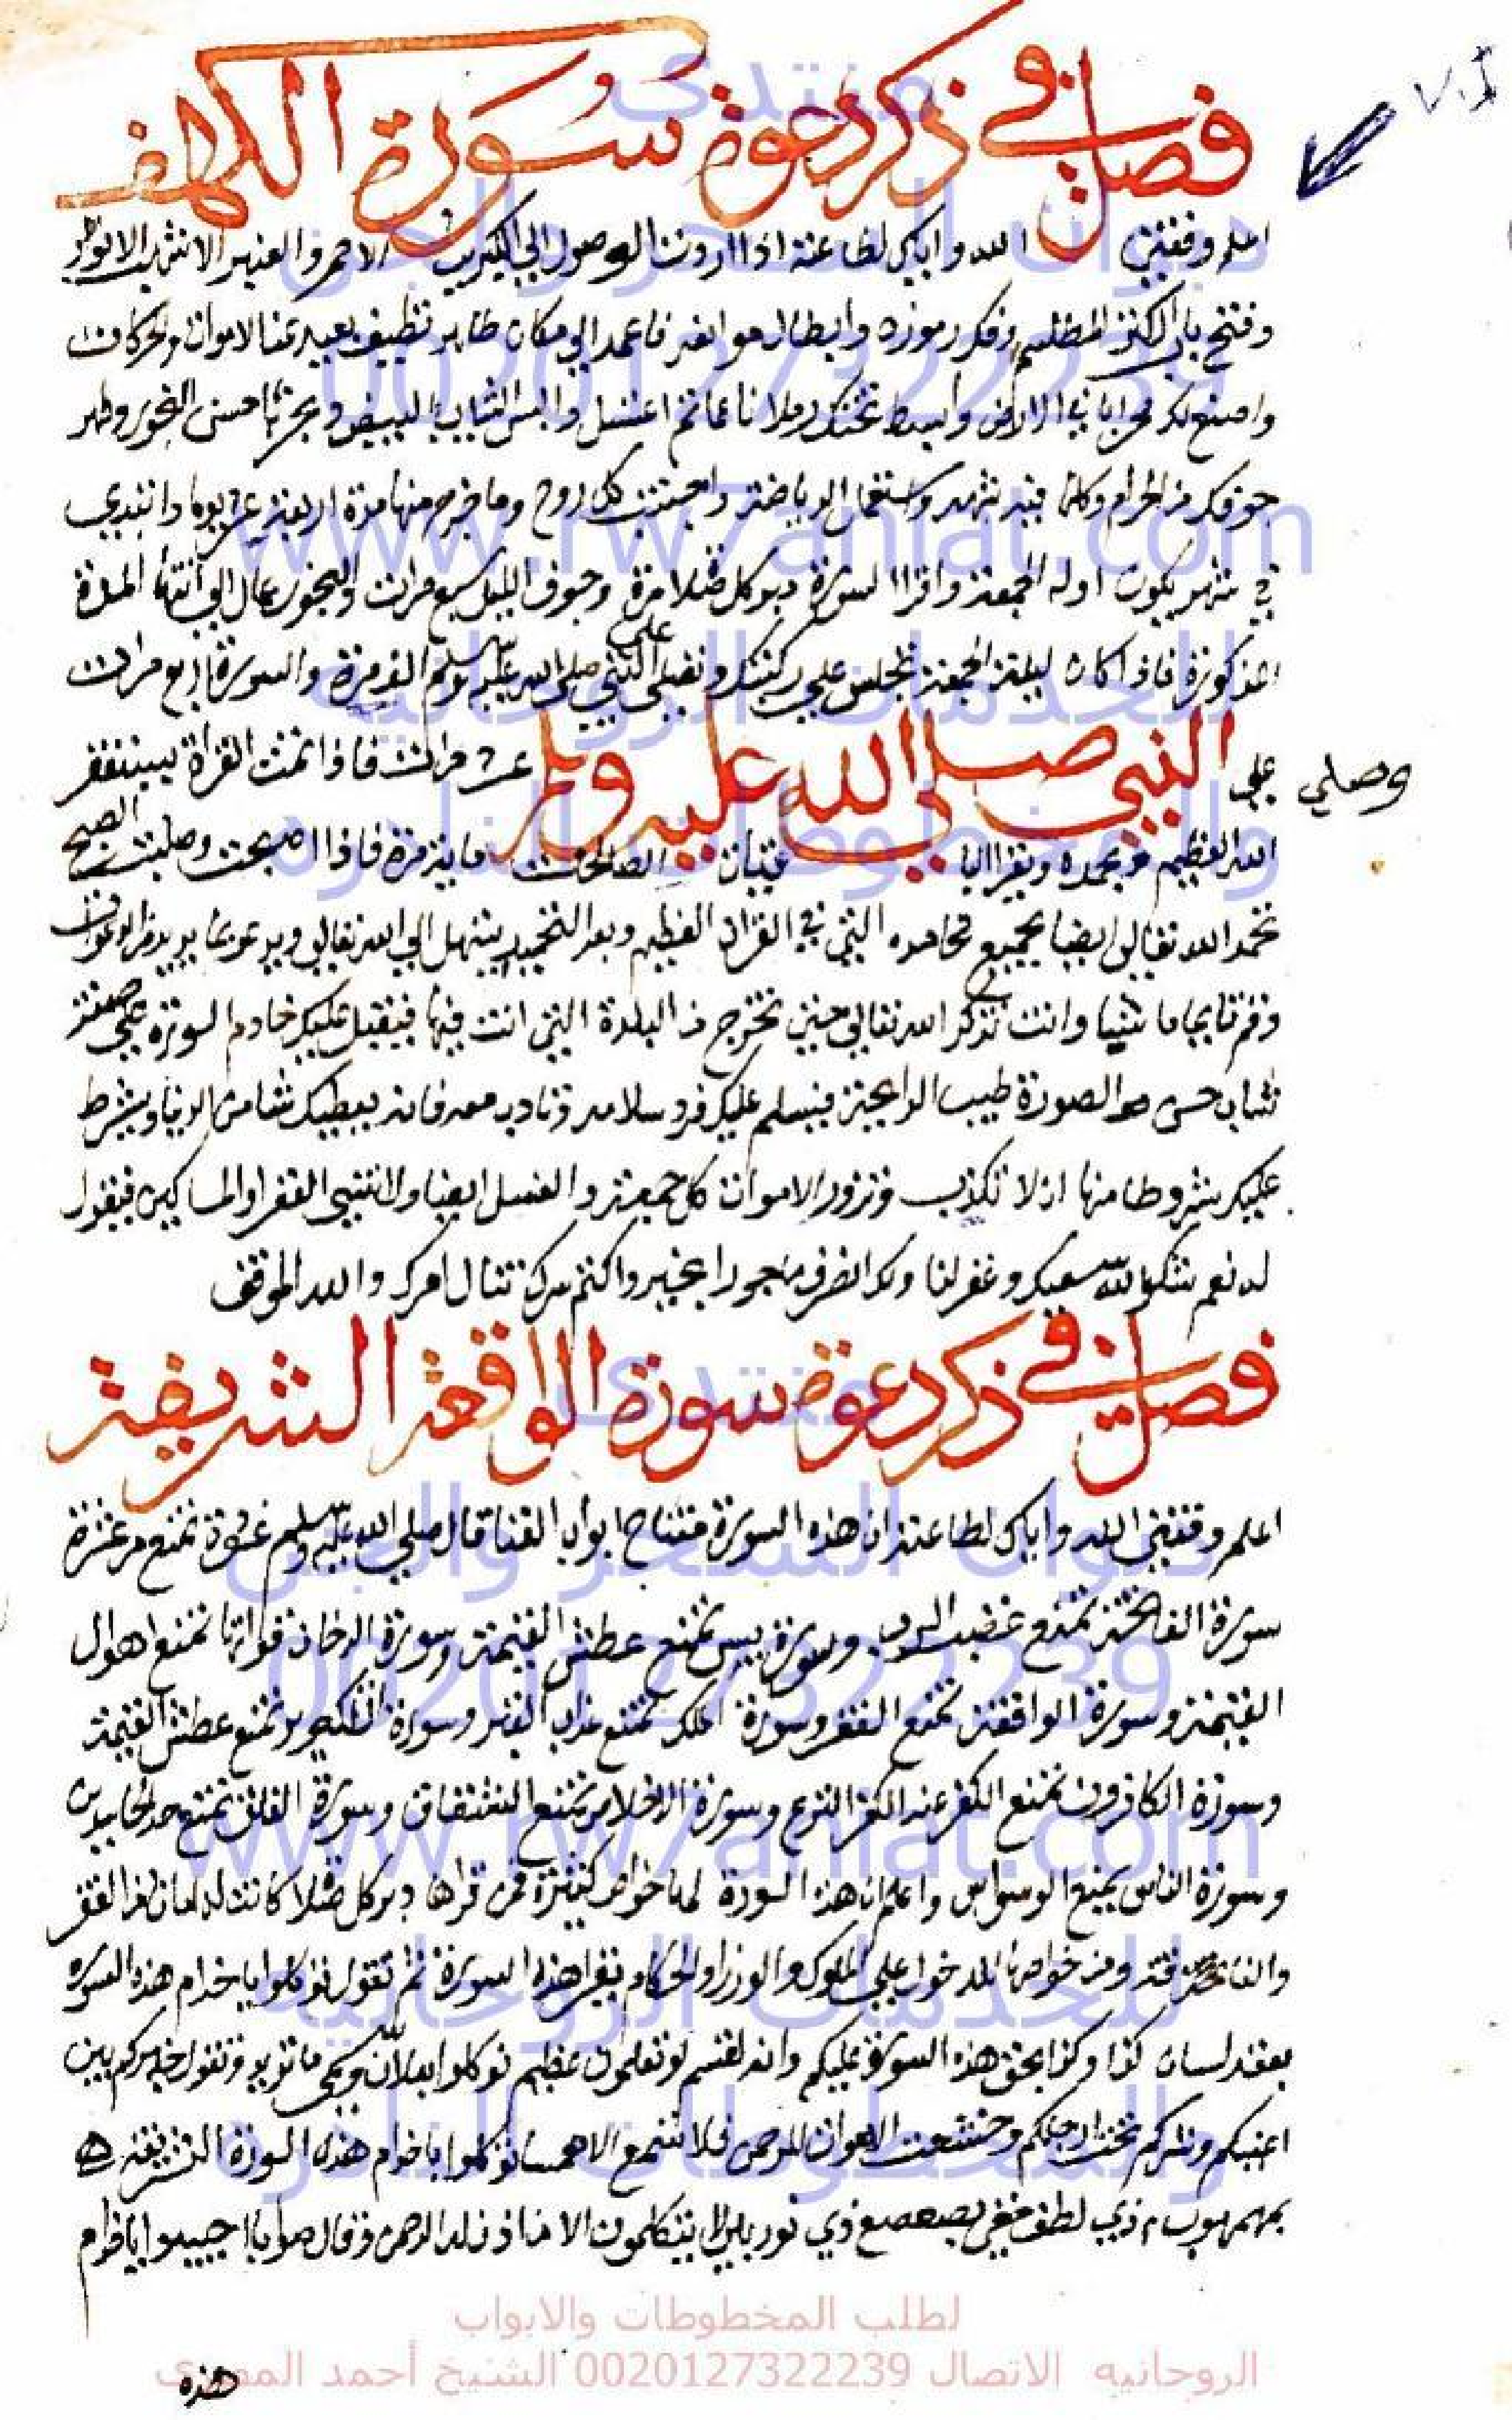 فصل في ذكر دعوة سورة الكهف
اعلم وفقني الله واياك لطاعته اذا اردت الوصول الي الكبريت الاحمر والعنبر الاشهب
وفتح باب الكنز المطلسم وفك رموزه وابطال موانعه فاعمد الي مكان طاهر نظيف بعيد عن الاصوات والحركات
واصنع لك محرابا في الارض وابسط تحتك رملا ناعما ثم اغتسل والبس الثياب البيض وبخرها حسن البخور وطهر
جوفك من الحرام وكل ما فيه شبهه واستعمال الرياضة واجتنب كل روح وما خرج منها مدة اربعة عشر يوما وابتدي
في شهر يكون اوله الجمعة واقرا السورة دبر كل صلاة مرة وجوف الليل سبع مرات والبخور عمال الي انتها المدة
المذكورة فاذا كان ليلة الجمعة تجلس علي ركبتك وتصلي علي النبي صلي الله عليه وسلم الف مرة والسورة اربع مرات
وصلي علي النبي صلي الله عليه وسلم عشر مرات فاذا اتمت القراة يستغفر
الله العظيم وبحمده ويقرا الباقيات الصالحات ماية مرة فاذا اصبحت وصليت الصبح
تحمد الله تعالي ايضا بجميع محامده التي في القران العظيم وبعد التحميد يبتهل الي الله تعالي ويدعو بما يريد من الدعوات
وقم قايما ماشيا وانت تذكر الله تعالي حين تخرج من البلدة التي انت فيها فيقبل عليك خادم السورة علي صفة
شاب حسن الصورة طيب الرايحة فيسلم عليك فرد سلامه وتادب معه فانه يعطيك شيا من الدنيا ويشرط
عليك شروطا منها ان لا تكذب وتزور الاموات كل جمعة والغسل ايضا ولا تنسي الفقرا والمساكين فيقول
له نعم شكر الله سعيك وغفر لنا ولك انصرف ماجورا بخير واكتم سرك تنال امرك والله الموفق
فصل في ذكر دعوة سورة الواقعة الشريفة
اعلم وفقني الله واياك لطاعته ان هذه السورة مفتاح ابواب الغنا قال صلي الله عليه وسلم عشرة تمنع من عشرة
سورة الفاتحة تمنع غضب الرب وسورة يس تمنع عطش القيمة وسورة الدخان قراتها تمنع اهوال
القيمة وسورة الواقعة تمنع الفقر وسورة الملك تمنع عذاب القبر وسورة التكوير تمنع عطش القيمة
وسورة الكافرون تمنع الكفر عند النزع وسورة الاخلاص تمنع النفاق وسورة الفلق تمنع حسد الحاسدين
وسورة الناس يمنع الوسواس واعلم ان هذه السورة لها خواص كثيرة فمن قراها دبر كل صلاة كانت له امان من الفقر
والفاقة ومن خواصها للدخول علي الملوك والوزرا والحكام يقرا هذه السورة ثم تقول توكلوا يا خدام هذه السورة
بعقد لسان كذا وكذا بحق هذه السورة عليكم وانه لقسم لو تعلمون عظيم توكلوا وتقول خيركم بين
اعينكم وشركم تحت ارجلكم وخشعت الاصوات للرحمن فلا تسمع الا همسا توكلوا يا خدام هذه السورة الشريفة
ذي لطف خفي بصعصع ذي نور لا يتكلمون الا من اذن له الرحمن وقال صوابا اجيبوا يا خدام
هذه
منتدى
ديوان السحر والجن
0020127322239
www.rw7aniat.com
للخدمات الروحانيه
والمخطوطات النادره
منتدى
ديوان السحر والجن
0020127322239
www.rw7aniat.com
للخدمات الروحانيه
والمخطوطات النادره
لطلب المخطوطات والابواب
الروحانيه الاتصال 0020127322239 الشيخ أحمد